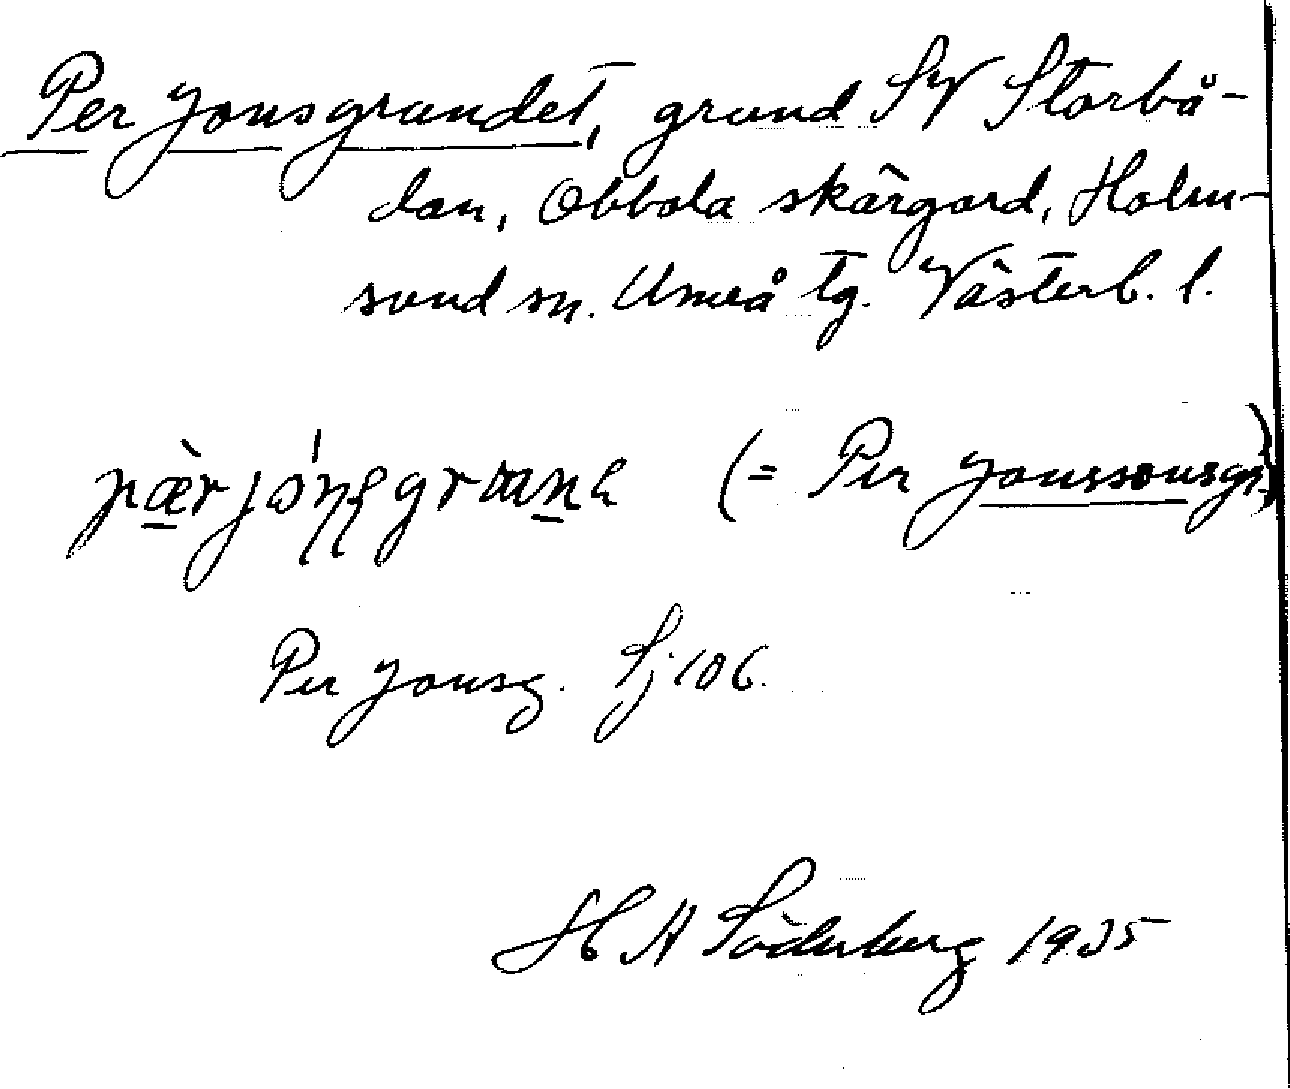 Per Jonsgrundet, grund SV Storbå-
dan, Obbola skärgård, Holm-
sund sn. Umeå tg. Västerb. l.
(= Per Jonssonsgr.)
Per Jonsg. Sj 106.
H A Söderberg 1935